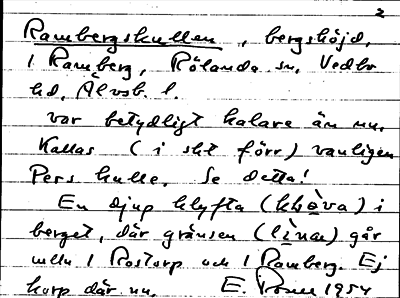 2
Rambergskullen, bergshöjd,
1 Ramberg, Rölanda sn, Vedbo
hd, Älvsb. l.
var betydligt kalare än nu.
Kallas (i sht förr) vanligen
Pers kulle. Se detta!
En djup klyfta (klòva) i
berget, där gränsen (lìnan) går
mlln 1 Rostorp och 1 Ramberg. Ej
korp där nu. E. 1954